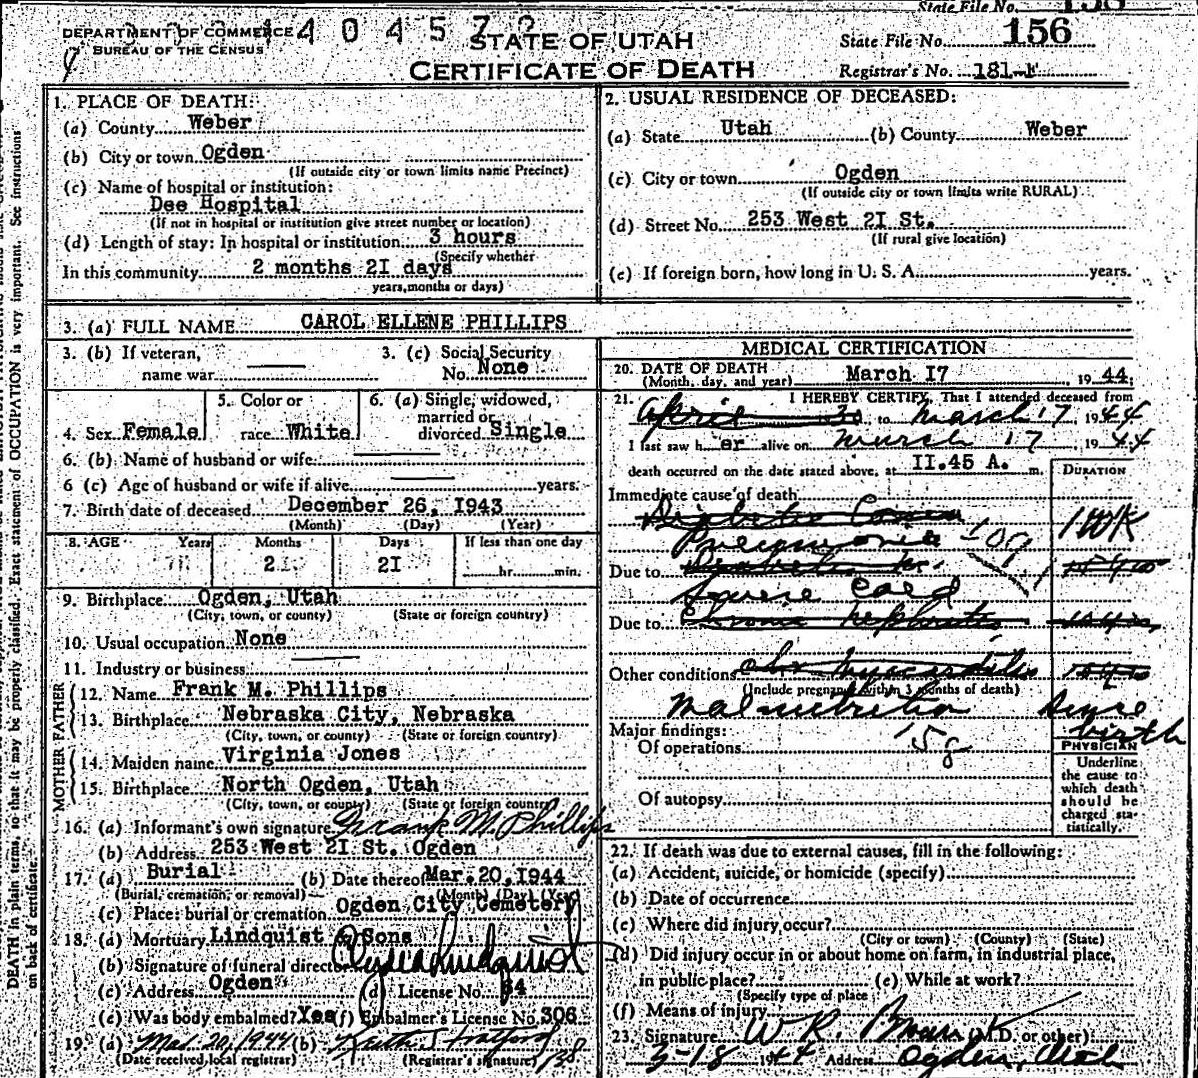 State File No. 156
DEPARTMENT OF COMMERCE
BUREAU OF THE CENSUS
140457
STATE OF UTAH
CERTIFICATE OF DEATH
State File No. 156
Registrar's No. 181-
1. PLACE OF DEATH:
(a) County Weber
(b) City or town Ogden
(If outside city or town limits name Precinct)
(c) Name of hospital or institution:
Dee Hospital
(If not in hospital or institution give street number or location)
(d) Length of stay: In hospital or institution 3 hours
(Specify whether
In this community 2 months 2I days
years, months or days)
2. USUAL RESIDENCE OF DECEASED:
(a) State Utah (b) County Weber
(c) City or town Ogden
(If outside city or town limits write RURAL)
(d) Street No. 253 West 2I St.
(If rural give location)
(e) If foreign born, how long in U. S. A. years.
3. (a) FULL NAME CAROL ELLENE PHILLIPS
3. (b) If veteran,
name war
3. (c) Social Security
No. None
4. Sex Female
5. Color or
race White
6. (a) Single, widowed,
married or
divorced Single
6. (b) Name of husband or wife
6 (c) Age of husband or wife if alive years.
7. Birth date of deceased December 26, I943
(Month) (Day) (Year)
8. AGE Years Months Days If less than one day
2 2I hr. min.
9. Birthplace Ogden, Utah
(City, town, or county) (State or foreign country)
10. Usual occupation None
11. Industry or business
FATHER
12. Name Frank M. Phillips
13. Birthplace Nebraska City, Nebraska
(City, town, or county) (State or foreign country)
MOTHER
14. Maiden name Virginia Jones
15. Birthplace North Ogden, Utah
(City, town, or county) (State or foreign country)
16. (a) Informant's own signature Frank M. Phillips
(b) Address 253 West 2I St. Ogden
17. (a) Burial (b) Date thereof Mar. 20, I944
(Burial, cremation, or removal) (Month) (Day) (Year)
(c) Place: burial or cremation Ogden City Cemetery
18. (a) Mortuary Lindquist & Sons
(b) Signature of funeral director Clyde Lindquist
(c) Address Ogden (d) License No. 34
(e) Was body embalmed? Yes (f) Embalmer's License No. 306
19. (a) Mar. 20, 1944 (b)
(Date received local registrar) (Registrar's signature) 138
MEDICAL CERTIFICATION
20. DATE OF DEATH
(Month, day, and year) March I7, 1944
21. I HEREBY CERTIFY, That I attended deceased from
April 30 to March 17 1944
I last saw her alive on March 17 1944
death occurred on the date stated above, at II.45 A. m.
DURATION
Immediate cause of death
Diabetic Coma
Pneumonia 109 1 WK
Due to Diabetes
Severe Cold
Due to Chronic Nephritis
Other conditions chr Myocarditis
(Include pregnancy within 3 months of death)
Malnutrition Since birth
Major findings:
158
Of operations
Of autopsy
PHYSICIAN
Underline
the cause to
which death
should be
charged sta-
tistically.
22. If death was due to external causes, fill in the following:
(a) Accident, suicide, or homicide (specify)
(b) Date of occurrence
(c) Where did injury occur?
(City or town) (County) (State)
(d) Did injury occur in or about home on farm, in industrial place,
in public place? (e) While at work?
(Specify type of place
(f) Means of injury
23. Signature W R. (M.D. or other)
3-18 1944 Address Ogden, Utah
DEATH in plain terms, so that it may be properly classified. Exact statement of OCCUPATION is very important. See instructions
on back of certificate.